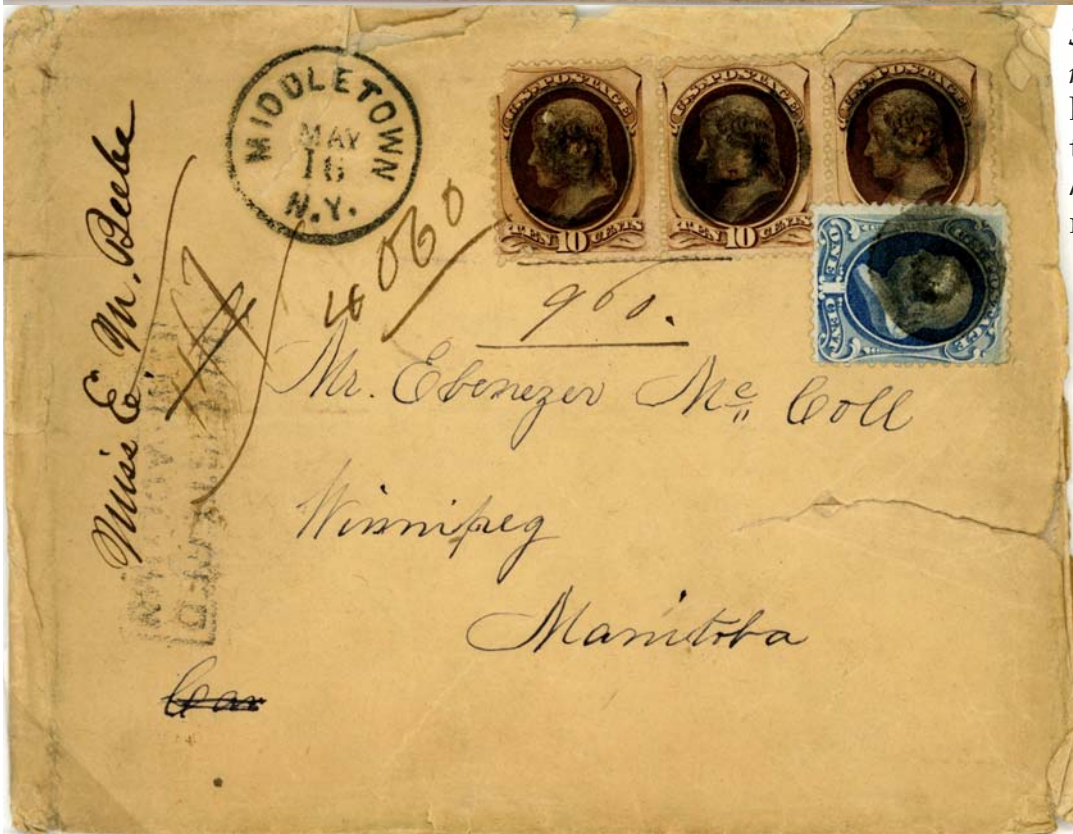 MIDDLETOWN
MAY
16
N.Y.
U.S. POSTAGE
TEN 10 CENTS
U.S. POSTAGE
TEN 10 CENTS
U.S. POSTAGE
TEN 10 CENTS
ONE 1 CENT
Miss E. M. Beebe
4060
960.
Mr. Ebenezer Mc Coll
Winnipeg
Manitoba